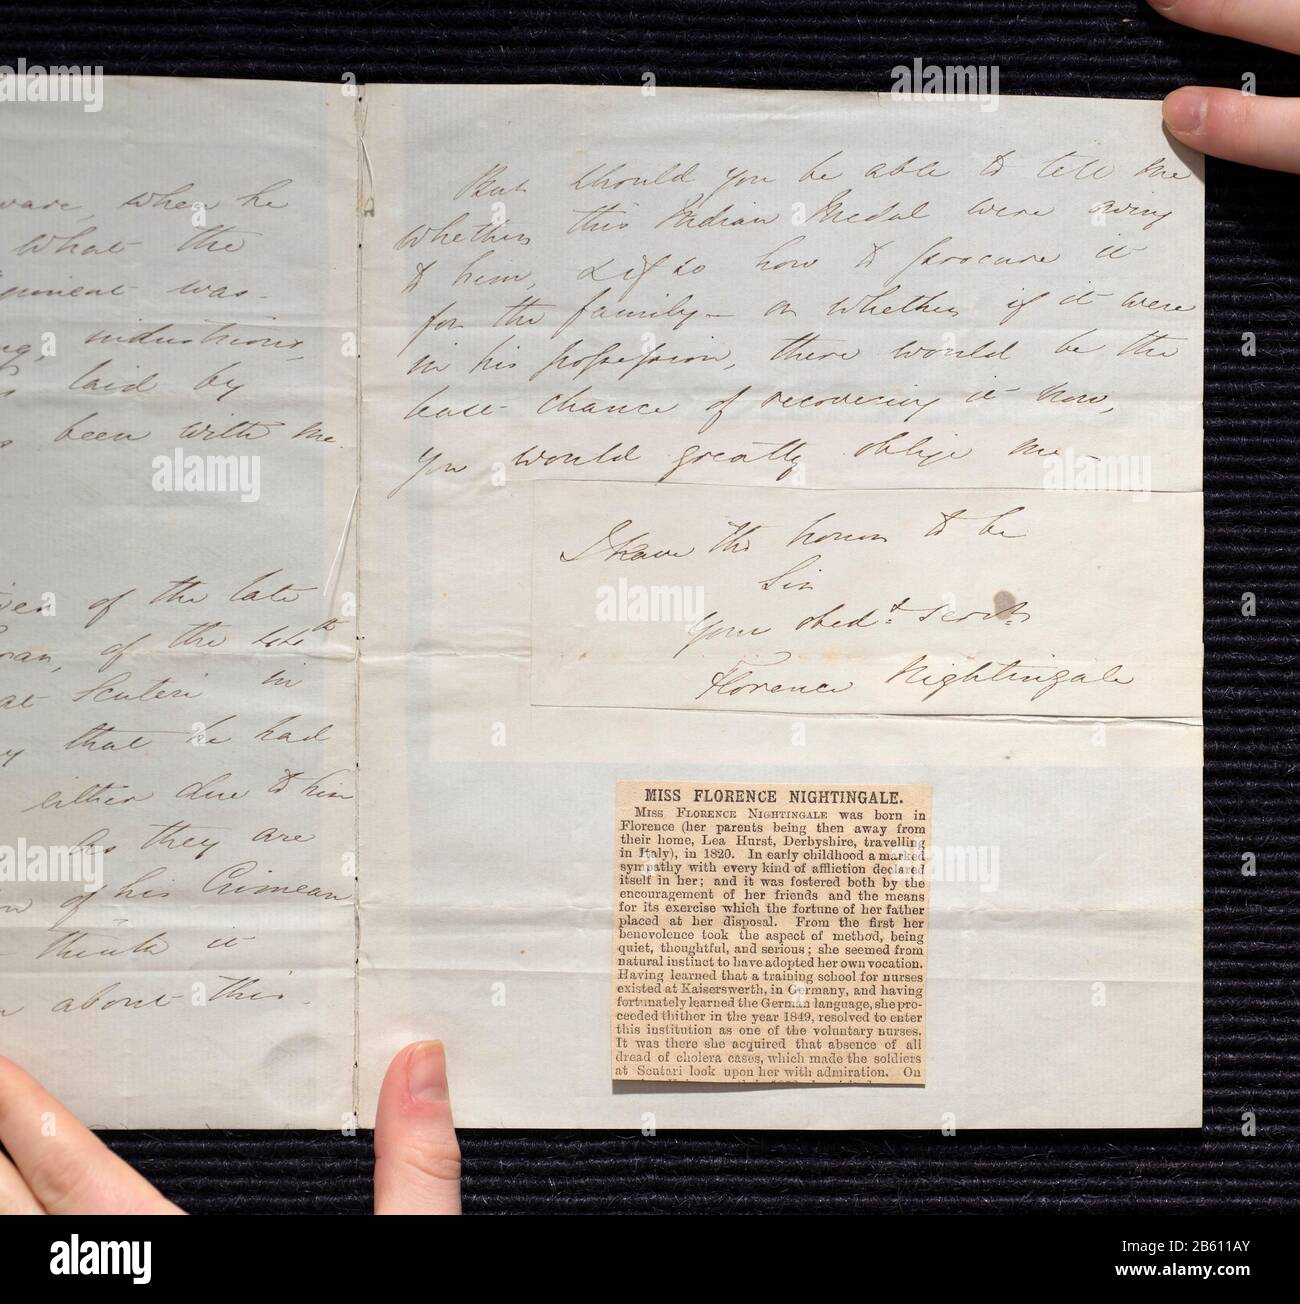 ware, when he
what the
was
industrious,
laid by
been with me.
of the late
of the 44th
at Scutari in
that he had
either due to him
As they are
of his Crimean
think it
about this
But should you be able to tell me
whether this Indian Medal were owing
to him, & if so how to procure it
for the family— or whether if it were
in his possession, there would be the
least chance of recovering it now,
you would greatly oblige me—
I have the honor to be
Sir
Your obedt. servt.
Florence Nightingale
MISS FLORENCE NIGHTINGALE.
MISS FLORENCE NIGHTINGALE was born in
Florence (her parents being then away from
their home, Lea Hurst, Derbyshire, travelling
in Italy), in 1820. In early childhood a marked
sympathy with every kind of affliction declared
itself in her; and it was fostered both by the
encouragement of her friends and the means
for its exercise which the fortune of her father
placed at her disposal. From the first her
benevolence took the aspect of method, being
quiet, thoughtful, and serious; she seemed from
natural instinct to have adopted her own vocation.
Having learned that a training school for nurses
existed at Kaiserswerth, in Germany, and having
fortunately learned the German language, she pro-
ceeded thither in the year 1849, resolved to enter
this institution as one of the voluntary nurses.
It was there she acquired that absence of all
dread of cholera cases, which made the soldiers
at Scutari look upon her with admiration. On
alamy
Image ID: 2B611AY
www.alamy.com